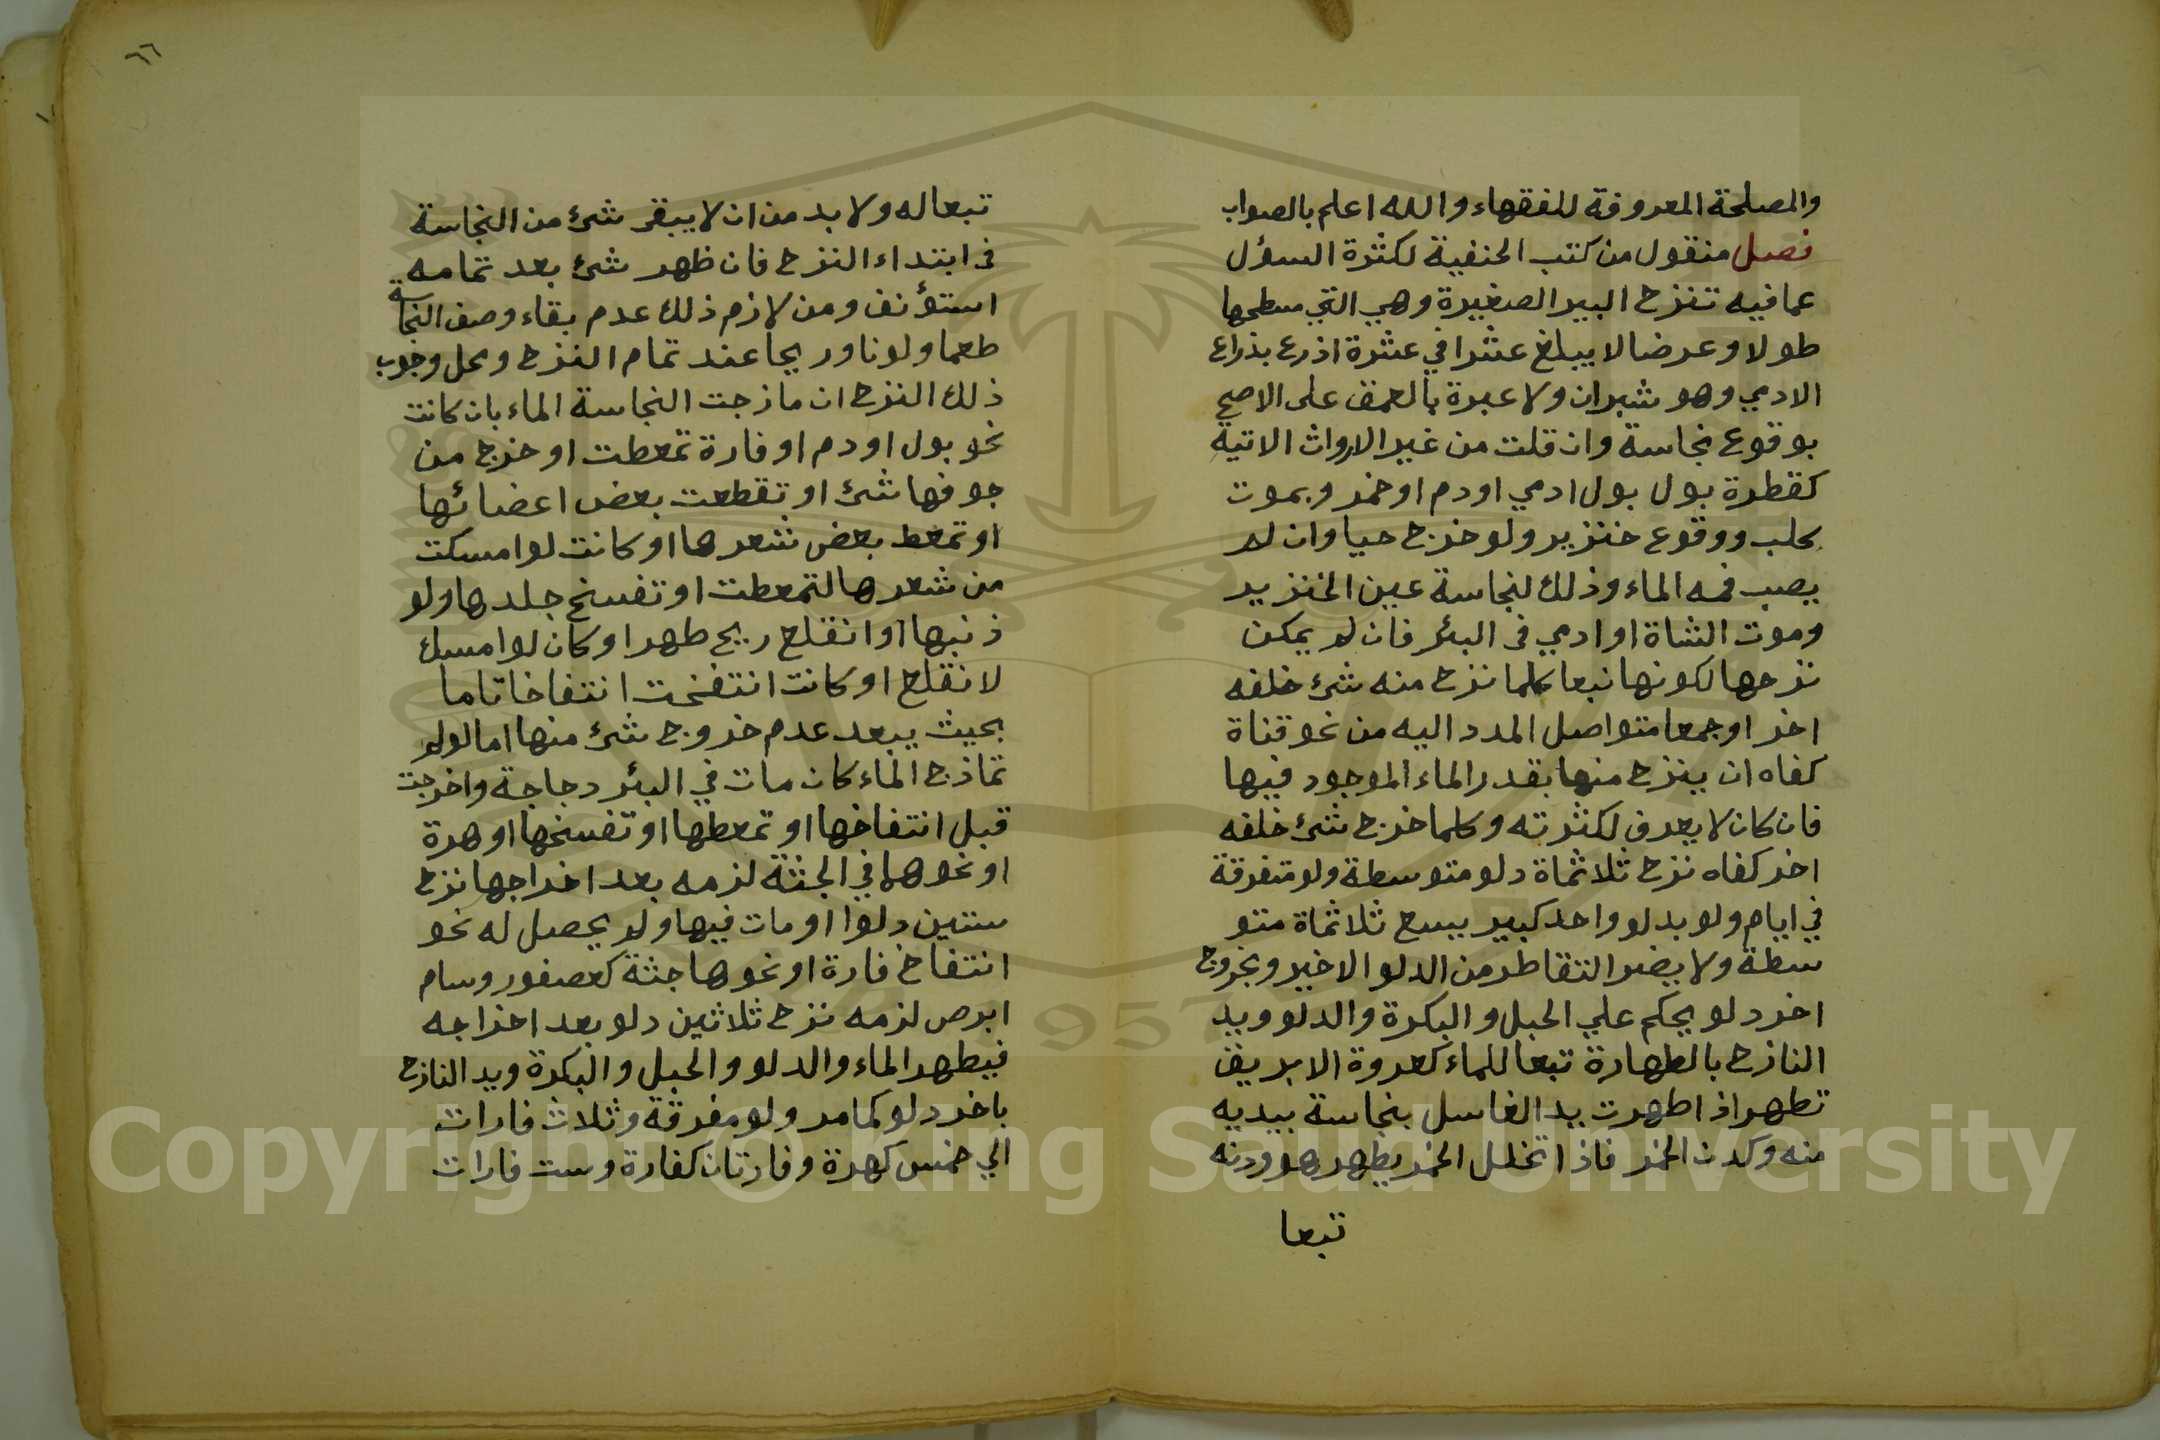 والمصلحة المعروفة للفقهاء والله اعلم بالصواب
فصل منقول من كتب الحنفية لكثرة السؤل
عمافيه تنزح البير الصغيرة وهي التي سطحها
طولا وعرضا لا يبلغ عشرا في عشرة اذرع بذراع
الادمي وهو شبران ولا عبرة بالعمق على الاصح
بوقوع نجاسة وان قلت من غير الارواث الاتية
كقطرة بول بول ادمي او دم او خمر وبموت
كلب ووقوع خنزير ولو خرج حيا وان لم
يصب فمه الماء وذلك لنجاسة عين الخنزير
وموت الشاة او ادمي فى البئر فان لم يمكن
نزحها لكونها نبعا كلما نزح منه شئ خلفه
اخر او جمعا متواصل المدد اليه من نحو قناة
كفاه ان ينزح منها بقدر الماء الموجود فيها
فان كان لا يعرف لكثرته وكلما خرج شئ خلفه
اخر كفاه نزح ثلاثماة دلو متوسطة ولو متفرقة
في ايام ولو بدلو واحد كبير يسع ثلاثماة متو
سطة ولا يضر التقاطر من الدلو الاخير وبخروج
اخر دلو يحكم علي الحبل و البكرة والدلو ويد
النازح بالطهارة تبعا للماء كعروة الابريق
تطهر اذا طهرت يد الغاسل بنجاسة بيديه
منه وكدن الخمر فاذا تخلل الخمر يطهر هو ودنه
تبعا
٦٦
تبعا له ولا بد من ان لا يبقى شئ من النجاسة
فى ابتداء النزح فان ظهر شئ بعد تمامه
استؤنف ومن لازم ذلك عدم بقاء وصف النجاسة
طعما ولونا وريحا عند تمام النزح ومحل وجوب
ذلك النزح ان مازجت النجاسة الماء بان كانت
نحو بول او دم او فارة تمعطت او خرج من
جوفها شئ او تقطعت بعض اعضائها
او تمعط بعض شعرها او كانت لو امسكت
من شعرها لتمعطت او تفسخ جلدها ولو
ذنبها او انقلع ريح طهر او كان لو امسك
لانقلع او كانت انتفخت انتفاخا تاما
بحيث يبعد عدم خروج شئ منها اما لو لم
تمازج الماء كان مات في البئر دجاجة واخرجت
قبل انتفاخها او تمعطها او تفسخها او هرة
او نحوهما في الجثة لزمه بعد اخراجها نزح
ستين دلوا او مات فيها ولم يحصل له نحو
انتفاخ فارة او نحوها جثة كعصفور وسام
ابرص لزمه نزح ثلاثين دلو بعد اخراجه
فيطهر الماء والدلو والحبل والبكرة ويد النازح
باخر دلو كما مر ولو مفرقة وثلاث فارات
الي خمس كهرة وفارتان كفارة وست فارات
Copyright © King Saud University
1957